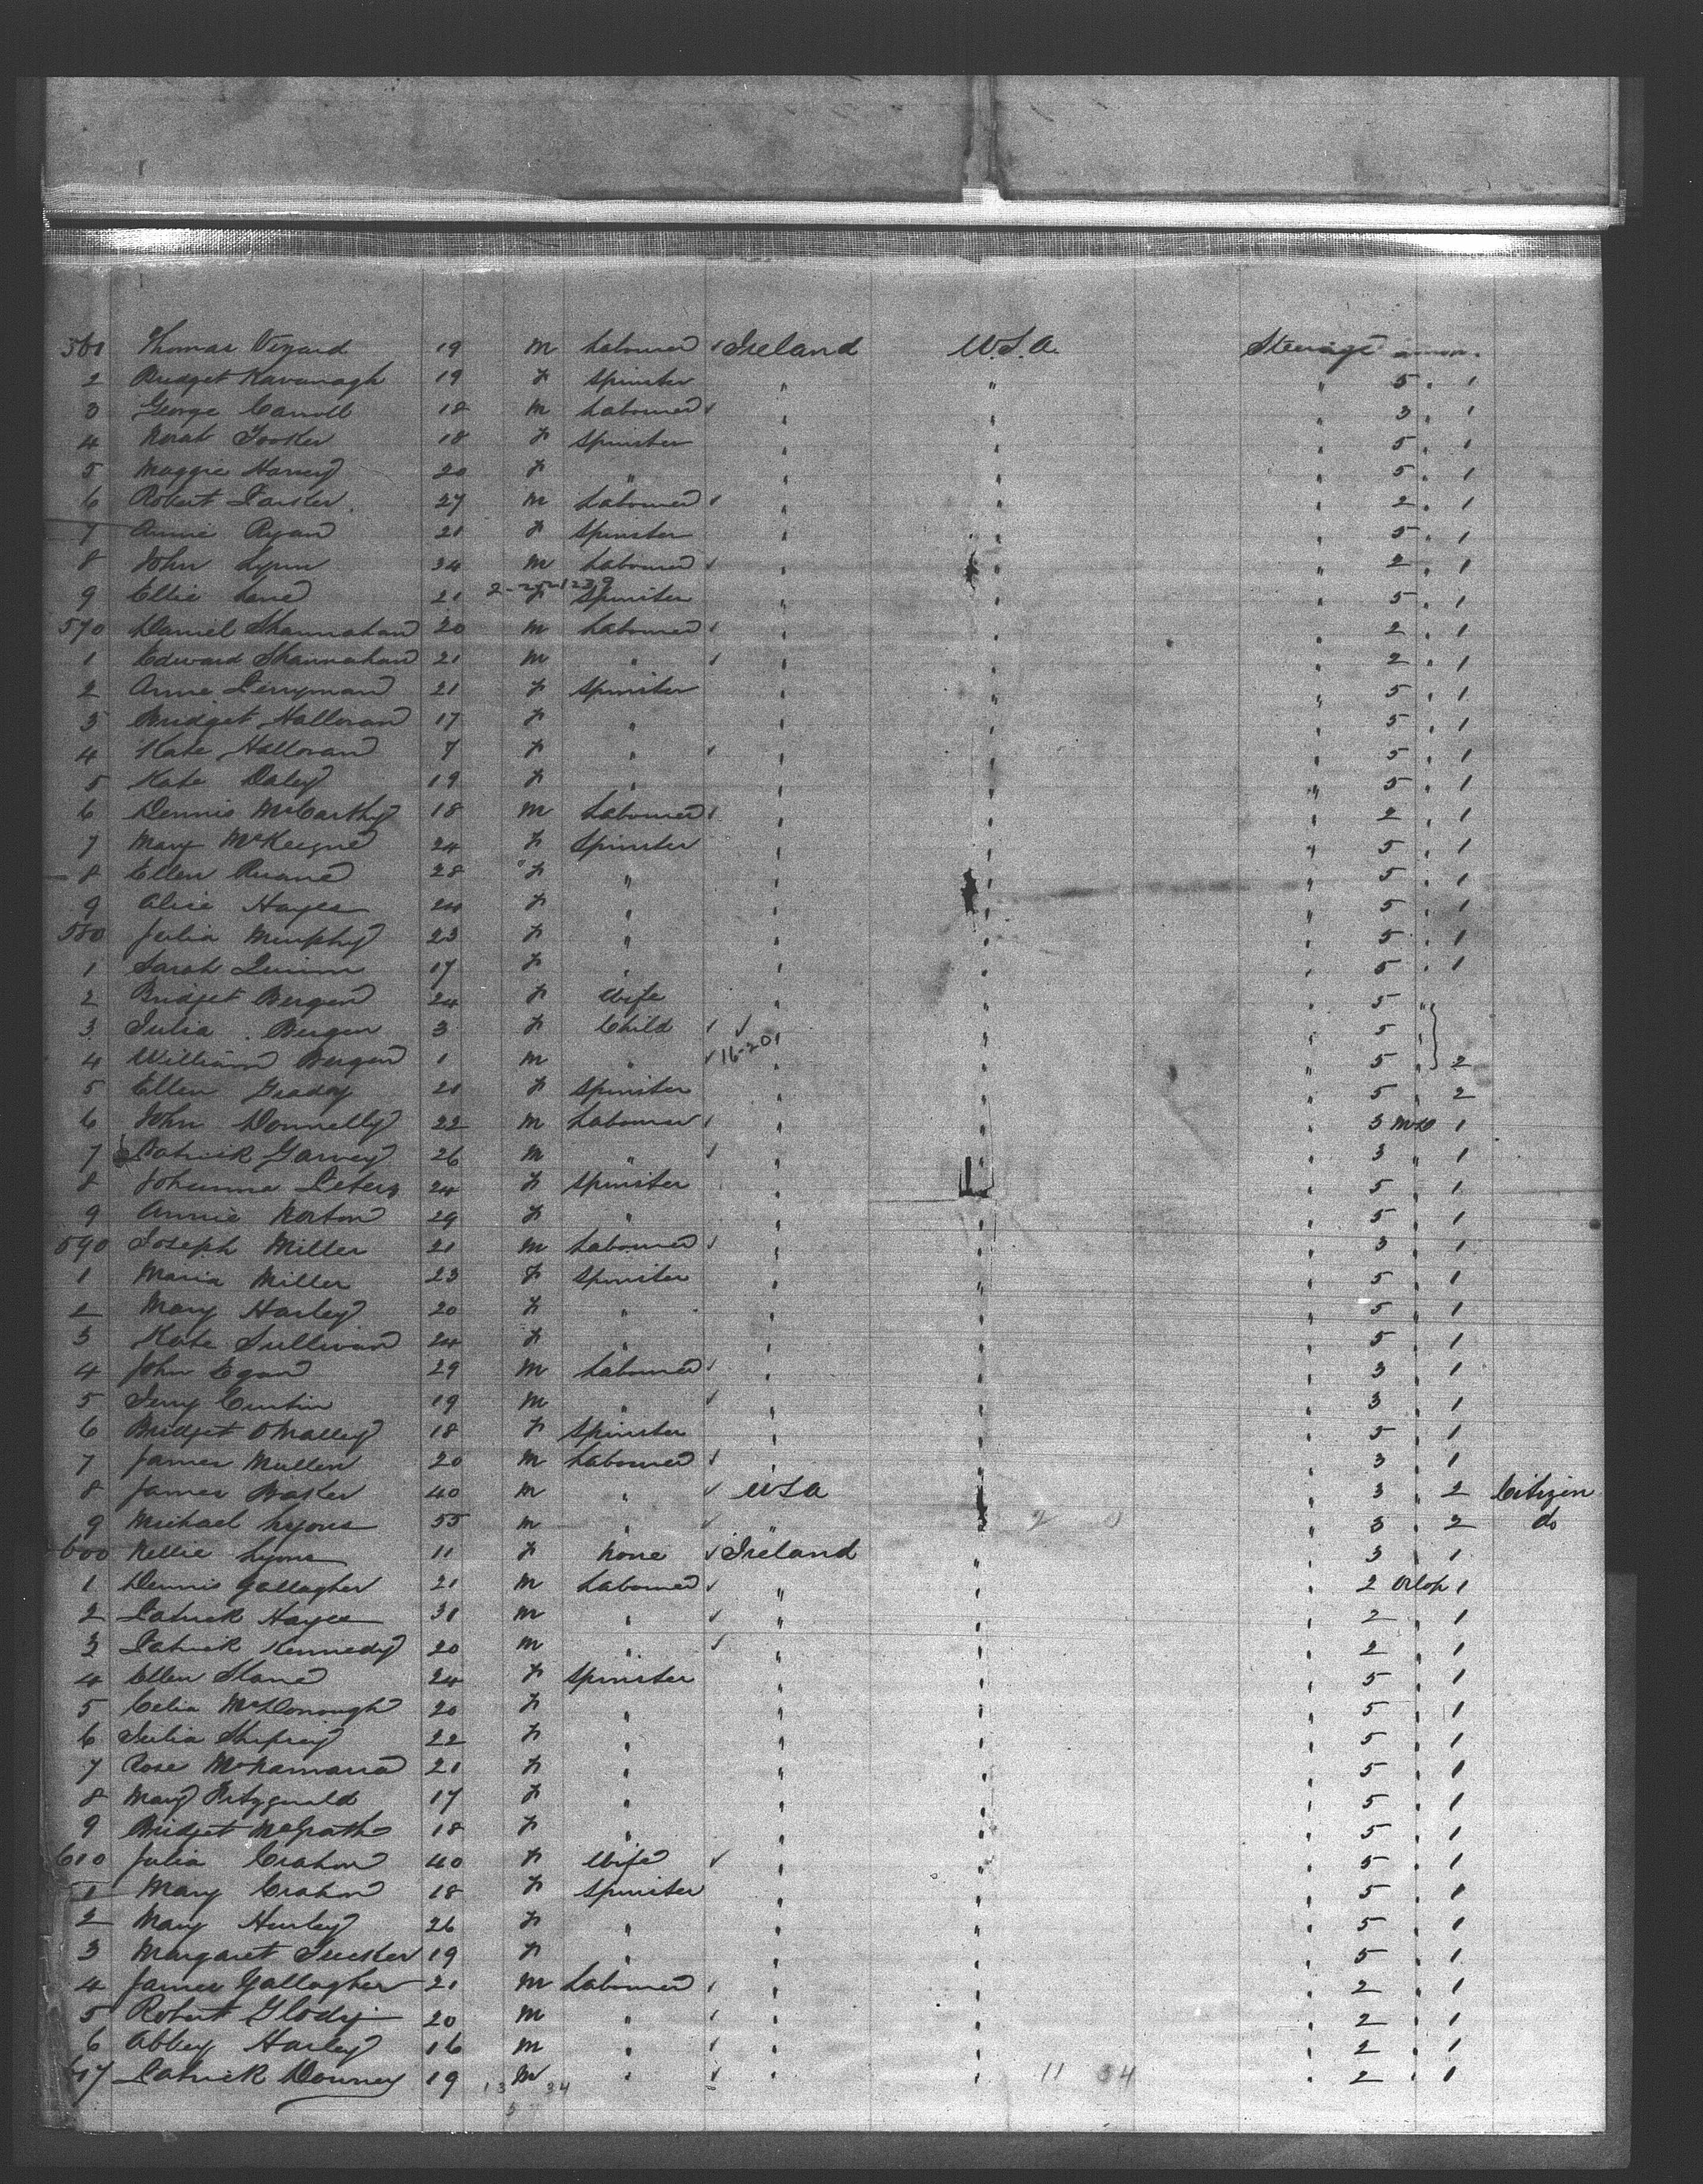 561 Thomas Vizard 19 M Labourer Ireland U.S.A. Steerage
2 Bridget Kavanagh 19 F Spinster " " " 5 " 1
3 George Carroll 18 M Labourer " " " 3 " 1
4 Norah Tooker 18 F Spinster " " " 5 " 1
5 Maggie Harvey 20 F " " " " 5 " 1
6 Robert Parker 27 M Labourer " " " 2 " 1
7 Annie Ryan 21 F Spinster " " " 5 " 1
8 John Lynn 34 M Labourer " " " 2 " 1
9 Ellie Lane 21 F Spinster " " " 5 " 1
570 Daniel Shannahan 20 M Labourer " " " 2 " 1
1 Edward Shannahan 21 M " " " " 2 " 1
2 Anne Perryman 21 F Spinster " " " 5 " 1
3 Bridget Halloran 17 F " " " " 5 " 1
4 Kate Halloran 7 F " " " " 5 " 1
5 Kate Daley 19 F " " " " 5 " 1
6 Dennis McCarthy 18 M Labourer " " " 2 " 1
7 Mary McKeigue 24 F Spinster " " " 5 " 1
8 Ellen Ruane 28 F " " " " 5 " 1
9 Alice Hayes 24 F " " " " 5 " 1
580 Julia Murphy 23 F " " " " 5 " 1
1 Sarah Quinn 17 F " " " " 5 " 1
2 Bridget Bergen 24 F Wife " " " 5 "
3 Julia Bergen 3 F Child " " " 5 "
4 William Bergen 1 M " 16-20 " " " 5 " 2
5 Ellen Gradey 21 F Spinster " " " 5 " 2
6 John Donnelly 22 M Labourer " " " 3 1
7 Patrick Garvey 26 M " " " " 3 " 1
8 Johanna Peters 24 F Spinster " " " 5 " 1
9 Annie Norton 29 F " " " " 5 " 1
590 Joseph Miller 21 M Labourer " " " 3 " 1
1 Maria Miller 23 F Spinster " " " 5 " 1
2 Mary Harley 20 F " " " " 5 " 1
3 Kate Sullivan 24 F " " " " 5 " 1
4 John Egan 29 M Labourer " " " 3 " 1
5 Jerry Curtin 19 M " " " " 3 " 1
6 Bridget OMalley 18 F Spinster " " " 5 " 1
7 James Mullen 20 M Labourer " " " 3 " 1
8 James Baker 40 M " USA " " 3 " 2 Citizen
9 Michael Lyons 55 M " " " " 3 " 2 do
600 Nellie Lyons 11 F None Ireland " " 3 " 1
1 Dennis Gallagher 21 M Labourer " " " 2 Orlop 1
2 Patrick Hayes 31 M " " " " 2 " 1
3 Patrick Kennedy 20 M " " " " 2 " 1
4 Ellen Slane 24 F Spinster " " " 5 " 1
5 Celia McDonough 20 F " " " " 5 " 1
6 Julia 22 F " " " " 5 " 1
7 Rose McNamara 21 F " " " " 5 " 1
8 Mary Fitzgerald 17 F " " " " 5 " 1
9 Bridget McGrath 18 F " " " " 5 " 1
610 Julia Crahan 40 F Wife " " " 5 " 1
1 Mary Crahan 18 F Spinster " " " 5 " 1
2 Mary Hurley 26 F " " " " 5 " 1
3 Margaret Tucker 19 F " " " " 5 " 1
4 James Gallagher 21 M Labourer " " " 2 " 1
5 Robert 20 M " " " " 2 " 1
6 Abbey Harley 16 M " " " " 2 " 1
617 Patrick Downey 19 M " " " 11 34 " 2 " 1
13 34
5